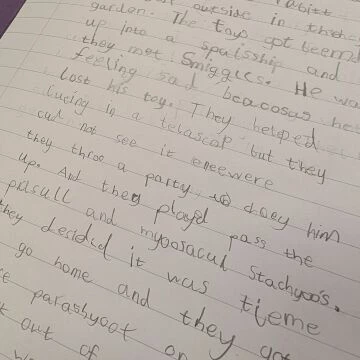 rabitt
outside in there
garden. The toys got beemd
up into a spaisship and
they met Smiggles. He was
feeling sad beacosus he
lost his toy. They helped
lucing in a telascap but they
cud not see it eneewere
they throo a party to chey him
up. And they playd pass the
prasull and myoosacul Stachyoo's.
they desided it was tieme
go home and they got
parashyoot on
out of